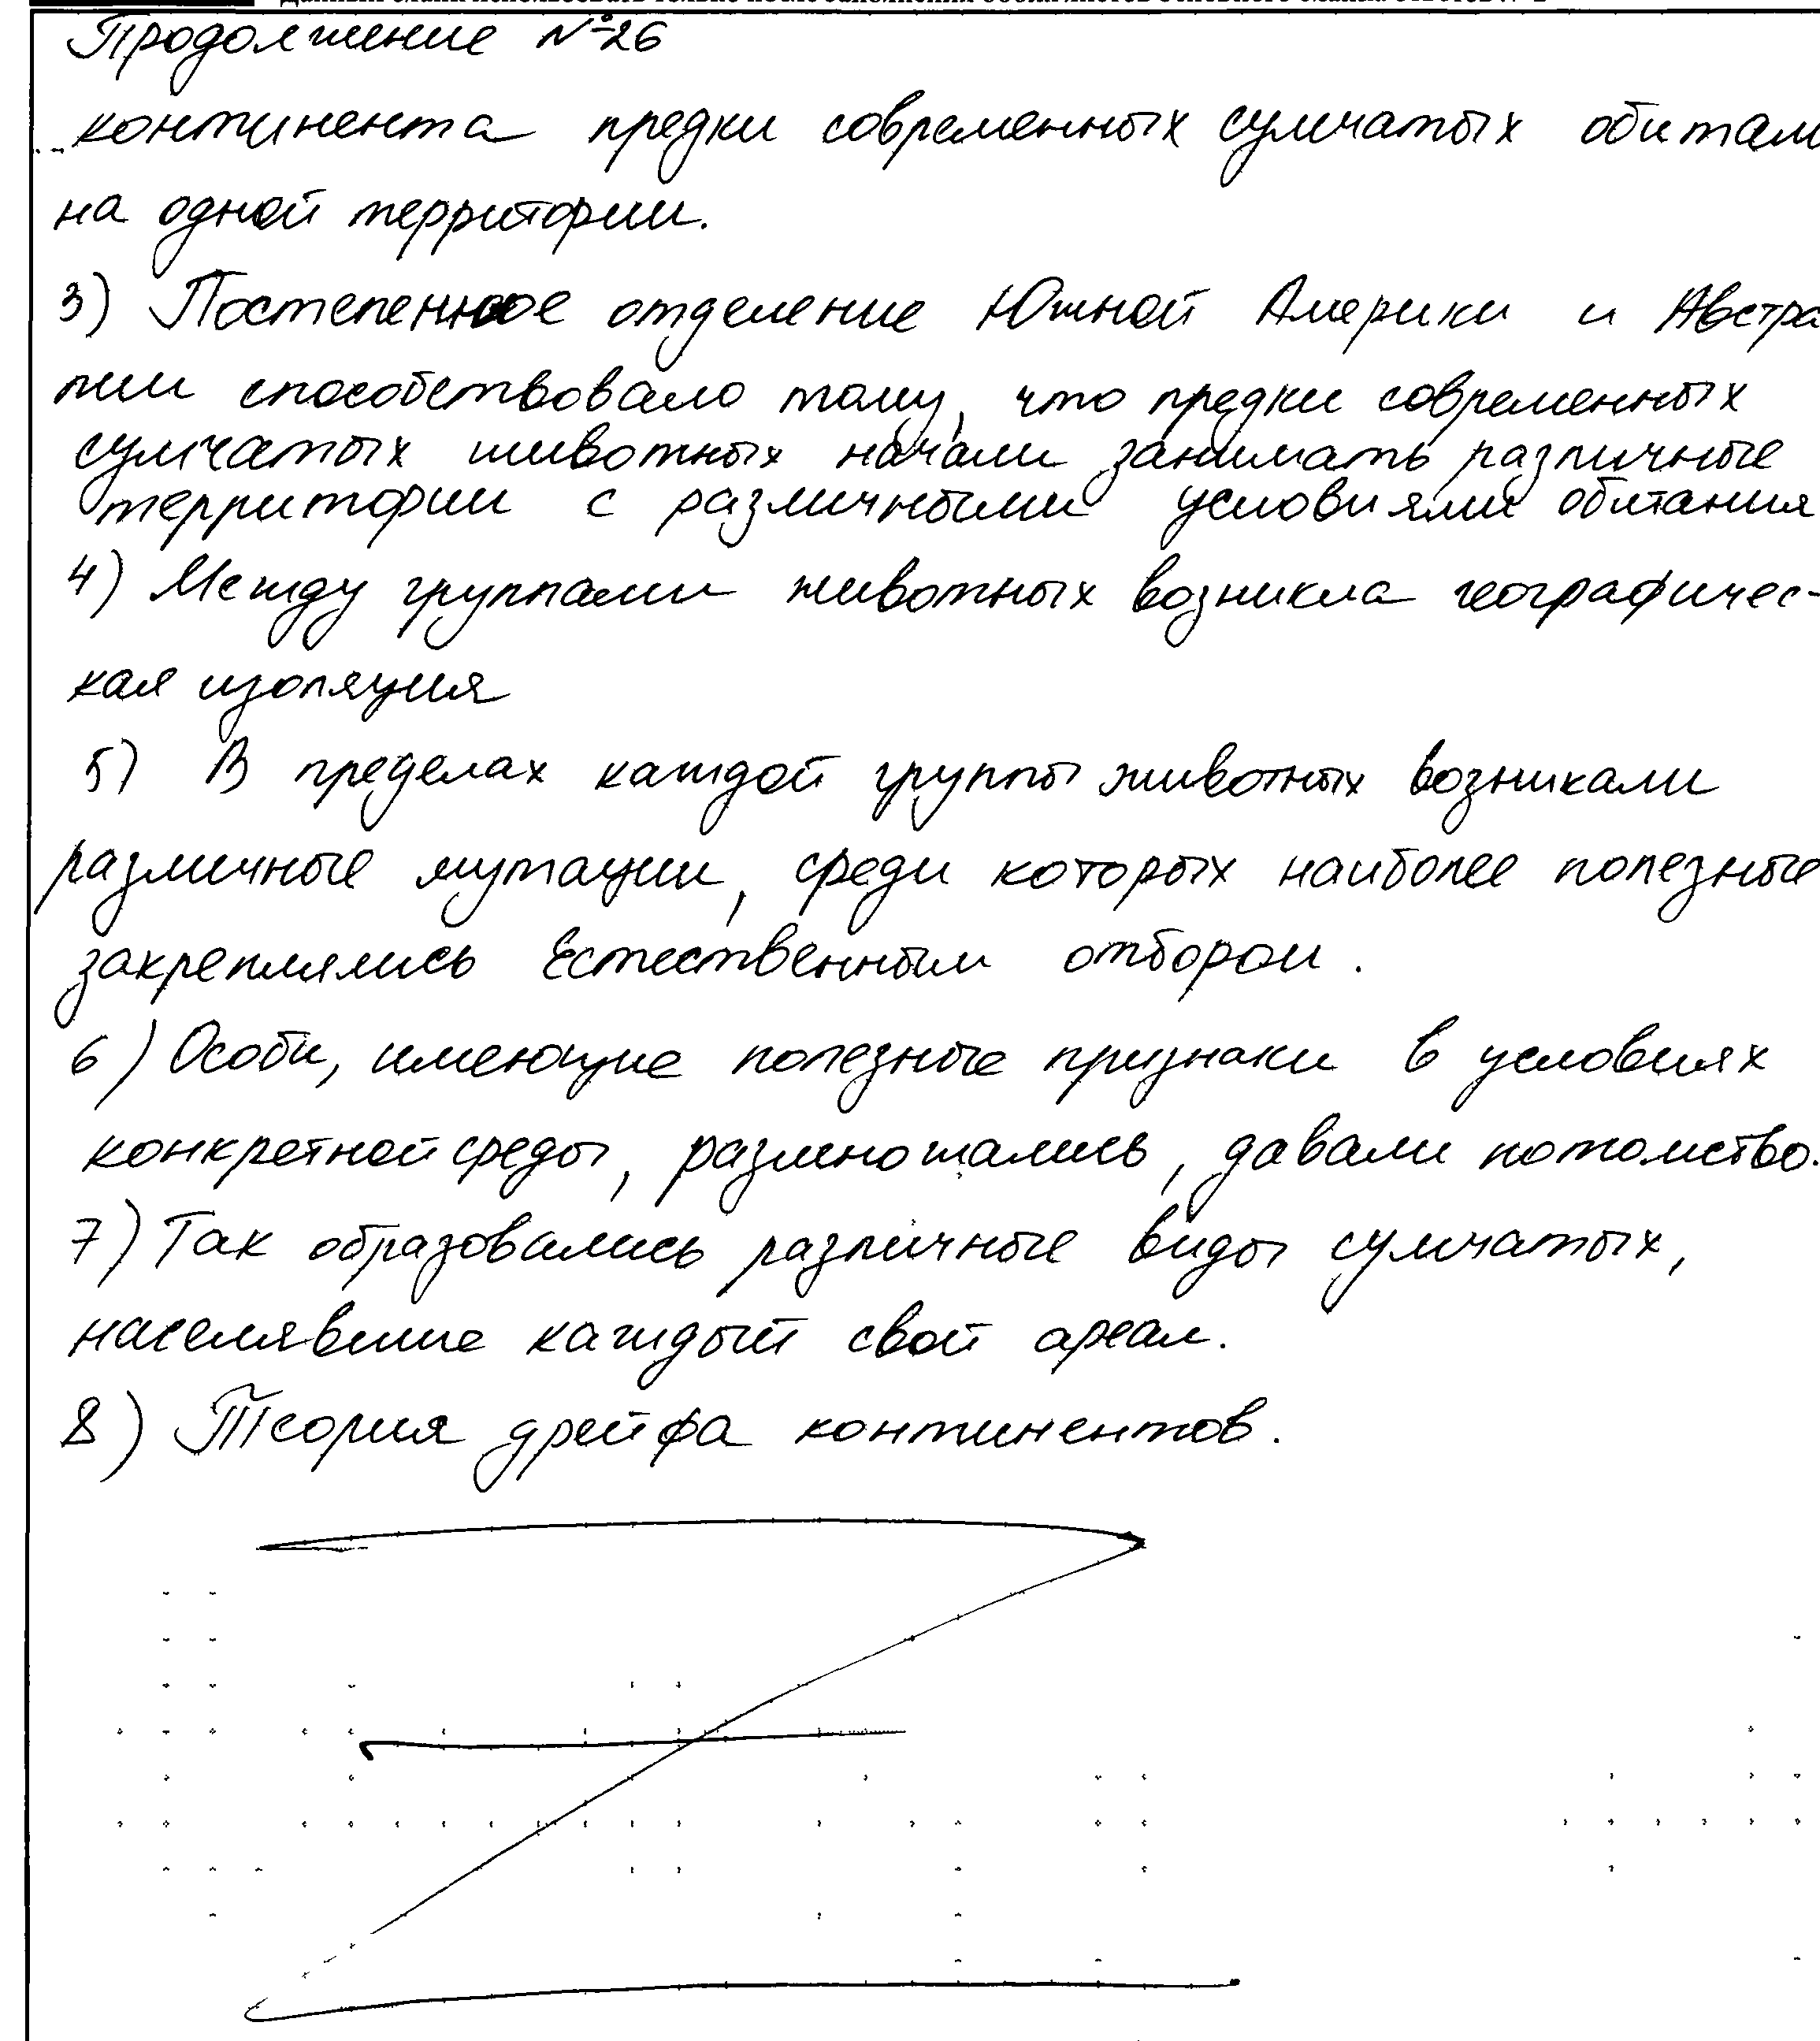 Продолжение №26
...континента предки современных сумчатых обитали
на одной территории.
3) Постепенное отделение Южной Америки и Австра
лии способствовало тому, что предки современных
сумчатых животных начали занимать различные
территории с различными условиями обитания
4) Между группами животных возникла географичес-
кая изоляция
5) В пределах каждой группы животных возникали
различные мутации, среди которых наиболее полезные
закреплялись естественным отбором.
6) Особи, имеющие полезные признаки в условиях
конкретной среды, размножались, давали потомство.
7) Так образовались различные виды сумчатых,
населявшие каждый свой ареал.
8) Теория дрейфа континентов.